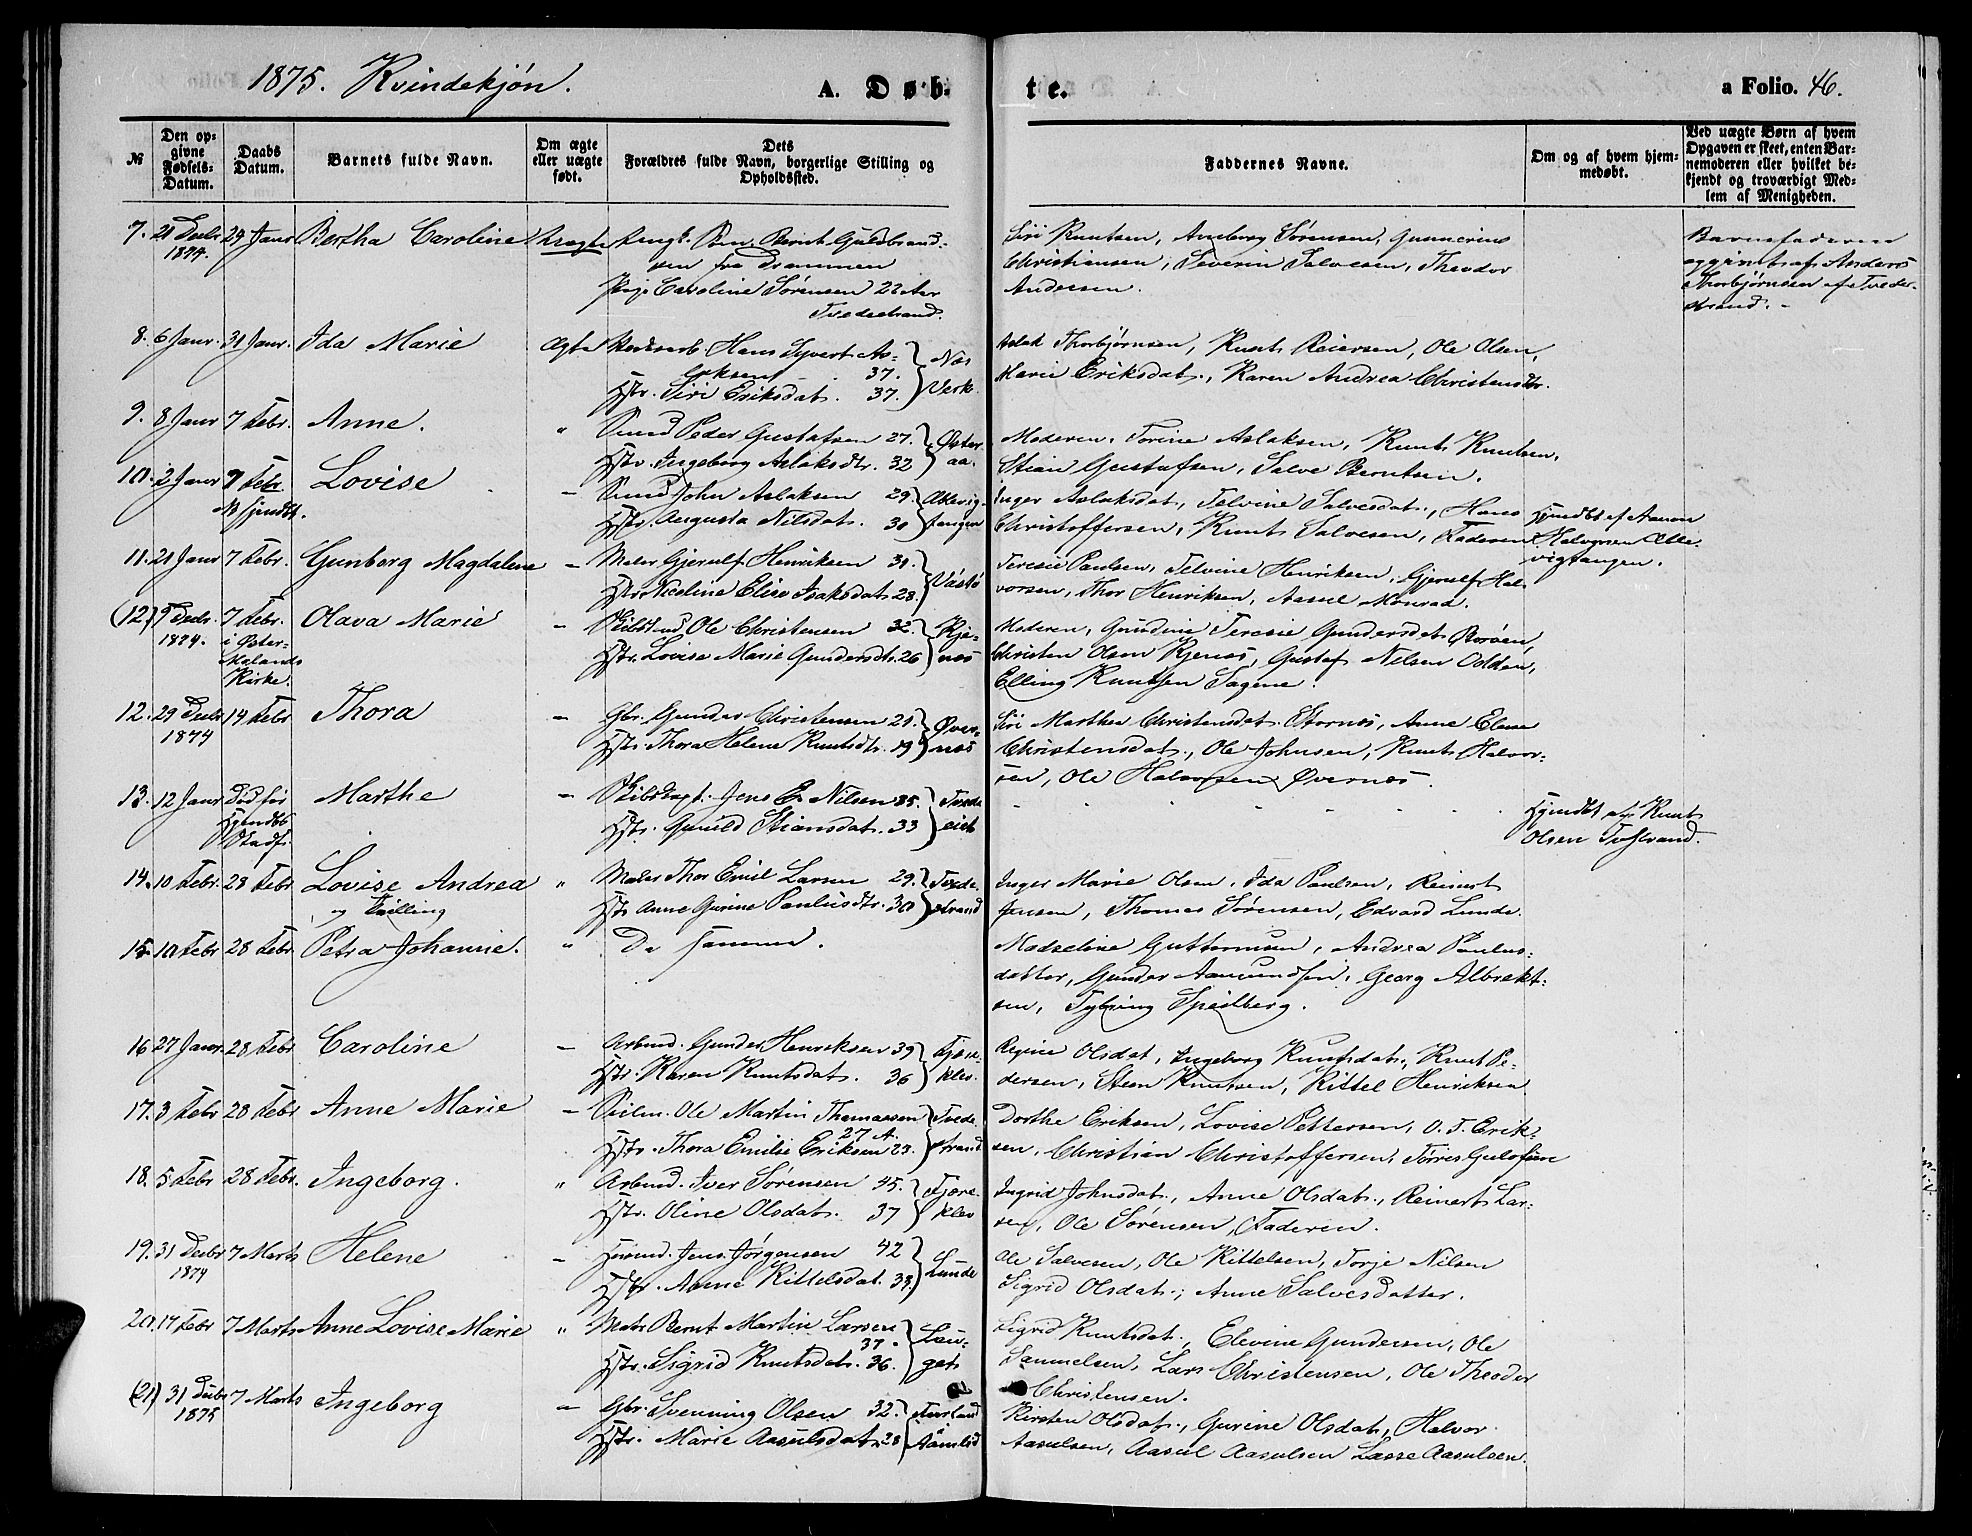 1875. Kvindekjøn.
A. Døb-
te.
a Folio. 46.
№
Den op-
givne
Fødsels-
Datum.
Daabs
Datum.
Barnets fulde Navn.
Om ægte
eller uægte
født.
Dets
Forældres fulde Navn, borgerlige Stilling og
Opholdssted.
Faddernes Navne.
Om og af hvem hjem-
medøbt.
Ved uægte Børn af hvem
Opgaven er skeet, enten Bar-
nemoderen eller hvilket be-
kjendt og troværdigt Med-
lem af Menigheden.
7. 21 Decbr 1874. 24 Janr Bertha Caroline Uægte Ungk. Bernt Guldbrand-
sen fra Drammen
Pige Caroline Sørensen 22 Aar
Tvedestrand.
Siri Knutsen, Anneborg Sørensen, Gunnerius
Christiansen, Severin Salvesen, Theodor
Andersen.
Barnefaderen
opgivet af Anders
Thorbjørnsen af Tvede-
strand.
8. 6 Janr. 31 Janr. Ida Marie Ægte Hans Syvert As-
laksen 37.
Hstr. Siri Eriksdat. 37. Næs
Verk.
Aslak Thorbjørnsen, Knut Reiersen, Ole Olsen,
Marie Eriksdat., Karen Andrea Christensdtr.
9. 8 Janr 7 Febr. Anne. " Smed Peder Gustafsen 27.
Hstr. Ingeborg Aslaksdtr. 32 Øster-
aa.
Moderen, Torine Aslaksen, Knut Knutsen,
Stian Gustafsen, Salve Berntsen.
10. 2 Janr 7 Febr. Lovise - Smed John Aslaksen 29.
Hstr. Augusta Nilsdat. 30
Inger Aslaksdat, Telvine Salvesdat., Hans
Christoffersen, Knut Salvesen, Faderen
Hjemdbt af Aanon
Halvorsen
vigtangen.
11. 21 Janr 7 Febr. Gunborg Magdalene - Maler Gjerulf Henriksen 31.
Hstr. Nicoline Elise Isaksdat. 28.
Teresie Paulsen, Telvine Henriksen, Gjerulf Hal-
vorsen, Thor Henriksen, Aasul Monrad.
(12) 9 Decbr. 1874. 7 Febr. i Øster-
Molands
Kirke. Olava Marie - Ole Christensen 32.
Hstr. Lovise Marie Gundersdtr. 26 Kje-
næs
Moderen, Gundine Teresie Gundersdat Borøen,
Christen Olsen Kjenæs, Gustaf Nilsen Odden,
Elling Knutsen Sagene.
12. 29 Decbr 1874 14 Febr Thora - Gbr. Gunder Christensen 21.
Hstr. Thora Helene Knutsdtr. 19 Øver-
næs
Siri Marthea Christensdat. Stornæs, Anne Elene
Christensdat., Ole Johnsen, Knut Halvor-
sen, Ole Halvorsen Øvernæs.
13. 12 Janr Død før
Hjemdbt
Stadf. Marthe - Skibskapt. Jens E. Nilsen 35.
Hstr. Gunild Stiansdat. 33
Hjemdbt af Knut
Olsen Tvstrand.
14. 10 Febr. 28 Febr Lovise Andrea
og Tvilling " Maler Thor Emil Larsen 29.
Hstr Anne Gurine Paulusdtr. 30 Tvede-
strand
Inger Marie Olsen, Ida Paulsen, Reinert
Jensen, Thomas Sørensen, Edvard Lunde.
15. 10 Febr 28 Febr Petra Johanne. " De samme.
Madseline Guttormsen, Andrea Paulus-
datter, Gunder Aamundsen, Georg Albrekt-
sen, Spedberg.
16 27 Janr. 28 Febr Caroline - Arbmd. Gunder Henriksen 39
Hstr. Karen Knutsdat. 36 Fjære-
klev.
Regine Olsdat, Ingeborg Knutsdat., Knut Pe-
dersen, Steen Knutsen, Kittel Henriksen
17. 3 Febr 28 Febr Anne Marie - Seilm. Ole Martin Thomassen
27 A.
Hstr. Thora Emilie Eriksen 23. Tvede
strand
Dorthe Eriksen, Lovise Pettersen, O. T. Erik-
sen, Christian Christoffersen, Tørres
18. 5 Febr 28 Febr. Ingeborg. " Arbmd. Iver Sørensen 45.
Hstr. Oline Olsdat. 37 Fjære
klev
Ingrid Johnsdat., Anne Olsdat., Reinert Lar-
sen, Ole Sørensen, Faderen.
19. 31 Decbr 1874 7 Marts Helene - Jens Jørgensen 42
Hstr. Anne Kittelsdat. 39 Lunde
Ole Salvesen, Ole Kittelsen, Torje Nilsen
Sigrid Olsdat., Anne Salvesdatter.
20. 17 Febr 7 Marts Anne Lovise Marie " Bernt Martin Larsen
37.
Hstr. Sigrid Knutsdat. 36. Lau-
get
Sigrid Knutsdat., Elevine Gundersen, Ole
Samuelsen, Lars Christensen, Ole Theodor
Christensen.
(21) 31 Decbr 1875 7 Marts Ingeborg - Gbr. Svenning Olsen 32.
Hstr. Marie Aasulsdat. 28
Kirsten Olsdat., Gurine Olsdat, Halvor
Aasulsen, Aasul Aasulsen Lasse Aasulsen.